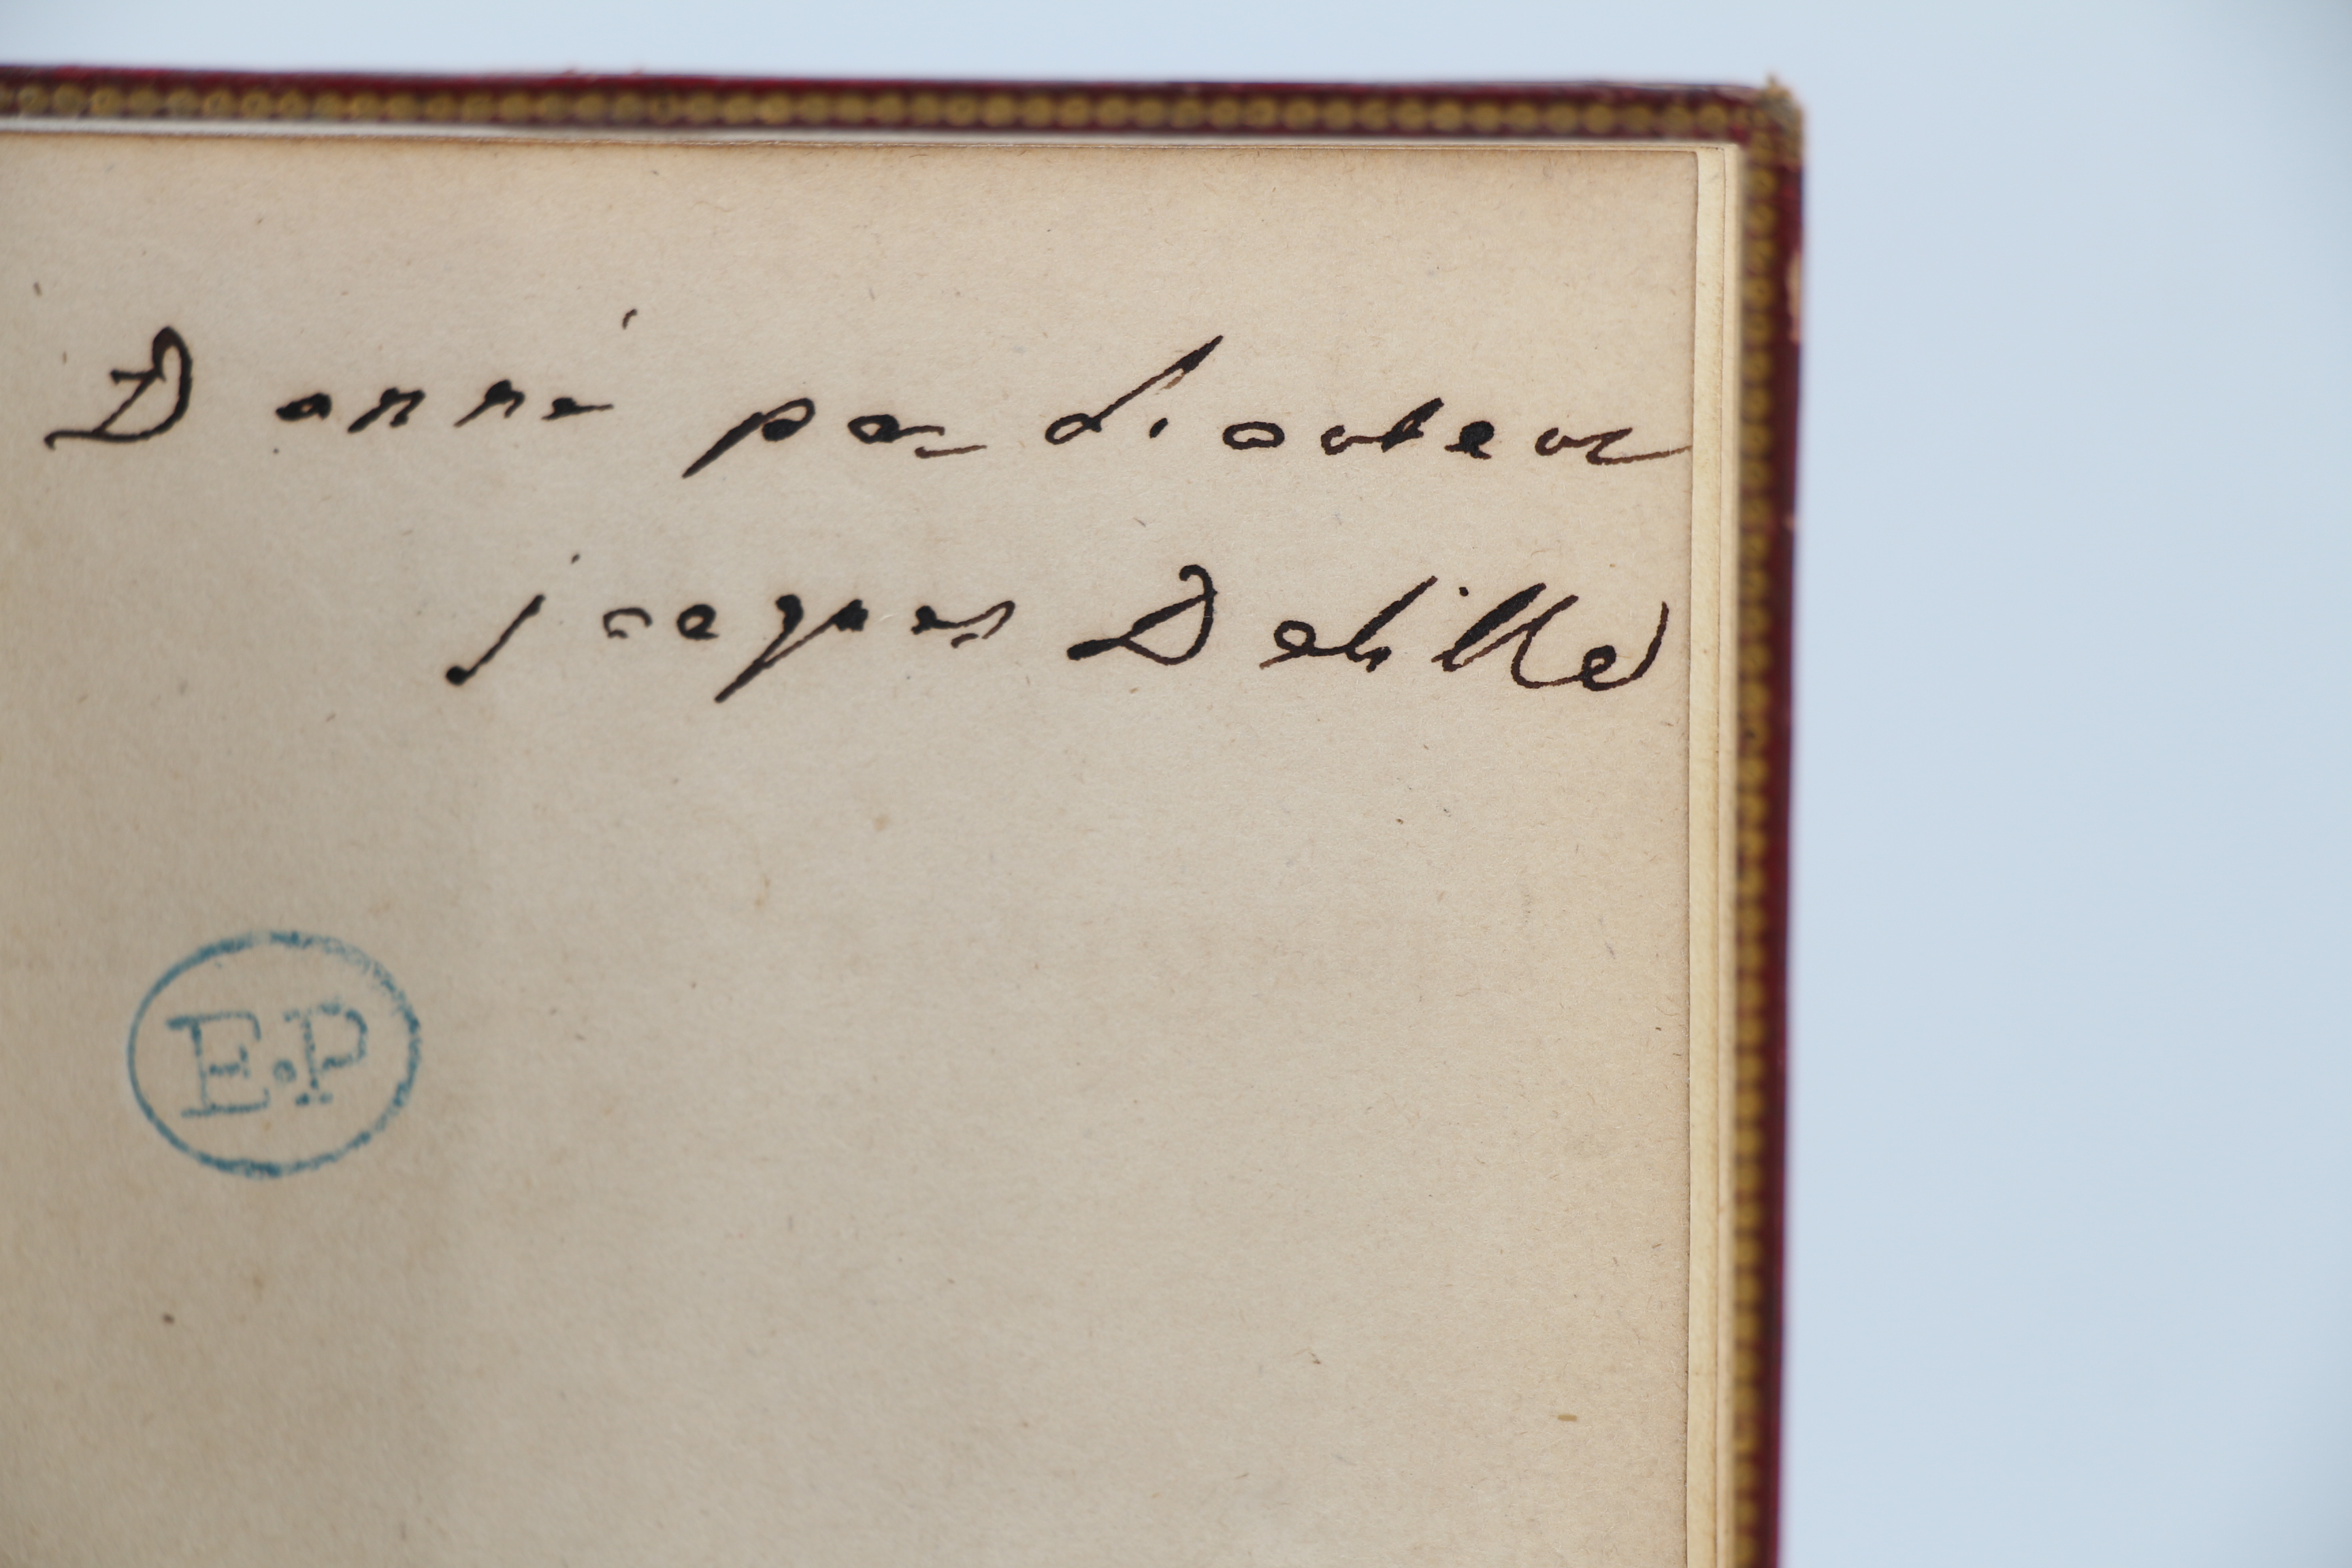 Donné par l'auteur
jacques Delille
E.P